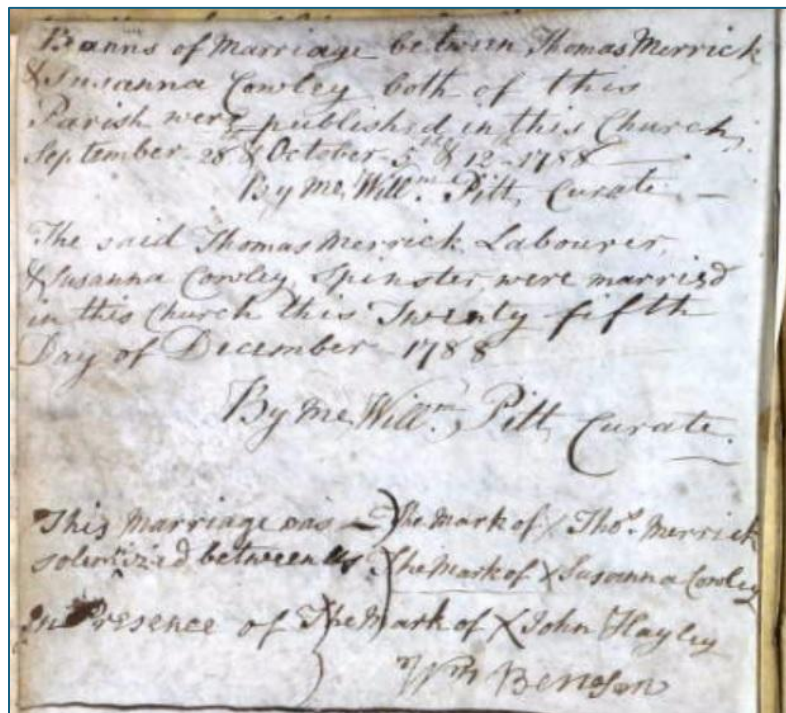 Banns of Marriage between Thomas Merrick
& Susanna Cowley both of this
Parish were published in this Church,
September 28 & October 5th & 12th 1788
By me, Willm. Pitt, Curate.
The said Thomas Merrick, Labourer,
& Susanna Cowley, Spinster, were married
in this Church this Twenty fifth
Day of December 1788
By me, Willm. Pitt, Curate.
This Marriage was } The Mark of X Thos. Merrick
solemnized between us } The Mark of X Susanna Cowley
In Presence of } The Mark of X John Hayley
Wm Benoson